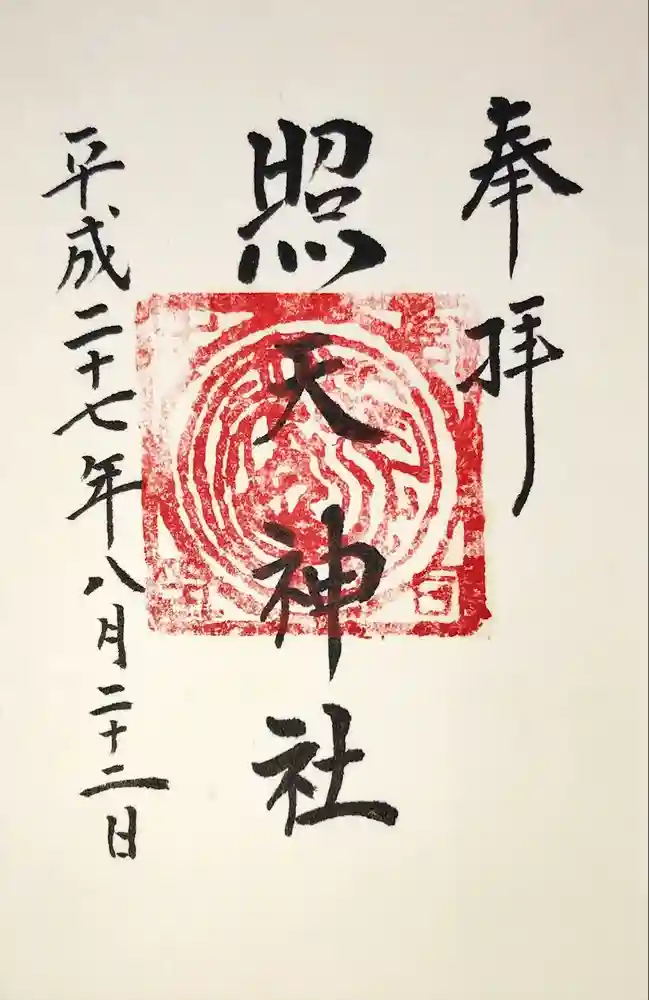 奉拝
照天神社
平成二十七年八月二十二日